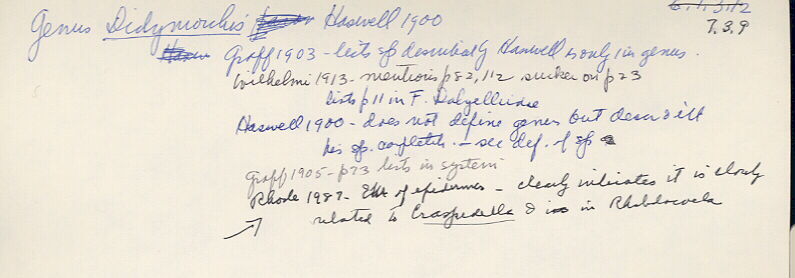 6.1.3.12
7.3.9
Genus Didymorchis Haswell 1900
Graff 1903 - lists sp described by Haswell as only in genus.
Wilhelmi 1913 - mentions p 82, 112 sucker on p 23
lists p 11 in F. Dalyelliidae
Haswell 1900 - does not define genus but descr & ill
his sp. completely - see def. of sp
Graff 1905 - p 73 lists in system
Rhode 1987 - of epidermis - clearly indicates it is closely
related to Craspedella & is in Rhabdocoela